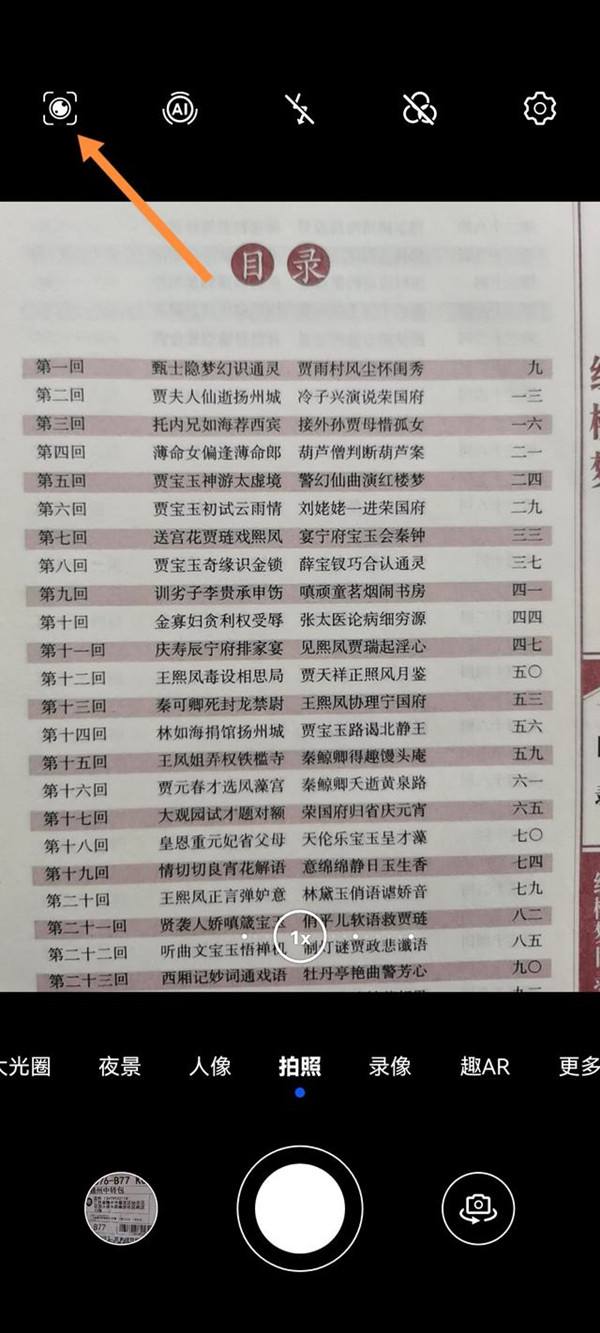 AI
目录
第一回 甄士隐梦幻识通灵 贾雨村风尘怀闺秀 九
第二回 贾夫人仙逝扬州城 冷子兴演说荣国府 一三
第三回 托内兄如海荐西宾 接外孙贾母惜孤女 一六
第四回 薄命女偏逢薄命郎 葫芦僧判断葫芦案 二一
第五回 贾宝玉神游太虚境 警幻仙曲演红楼梦 二四
第六回 贾宝玉初试云雨情 刘姥姥一进荣国府 二九
第七回 送宫花贾琏戏熙凤 宴宁府宝玉会秦钟 三三
第八回 贾宝玉奇缘识金锁 薛宝钗巧合认通灵 三七
第九回 训劣子李贵承申饬 嗔顽童茗烟闹书房 四一
第十回 金寡妇贪利权受辱 张太医论病细穷源 四四
第十一回 庆寿辰宁府排家宴 见熙凤贾瑞起淫心 四七
第十二回 王熙凤毒设相思局 贾天祥正照风月鉴 五〇
第十三回 秦可卿死封龙禁尉 王熙凤协理宁国府 五三
第十四回 林如海捐馆扬州城 贾宝玉路谒北静王 五六
第十五回 王凤姐弄权铁槛寺 秦鲸卿得趣馒头庵 五九
第十六回 贾元春才选凤藻宫 秦鲸卿夭逝黄泉路 六一
第十七回 大观园试才题对额 荣国府归省庆元宵 六五
第十八回 皇恩重元妃省父母 天伦乐宝玉呈才藻 七〇
第十九回 情切切良宵花解语 意绵绵静日玉生香 七四
第二十回 王熙凤正言弹妒意 林黛玉俏语谑娇音 七九
第二十一回 贤袭人娇嗔箴宝玉 俏平儿软语救贾琏 八二
1x
第二十二回 听曲文宝玉悟禅机 制灯谜贾政悲谶语 八五
第二十三回 西厢记妙词通戏语 牡丹亭艳曲警芳心 九〇
大光圈 夜景 人像 拍照 录像 趣AR 更多
B77